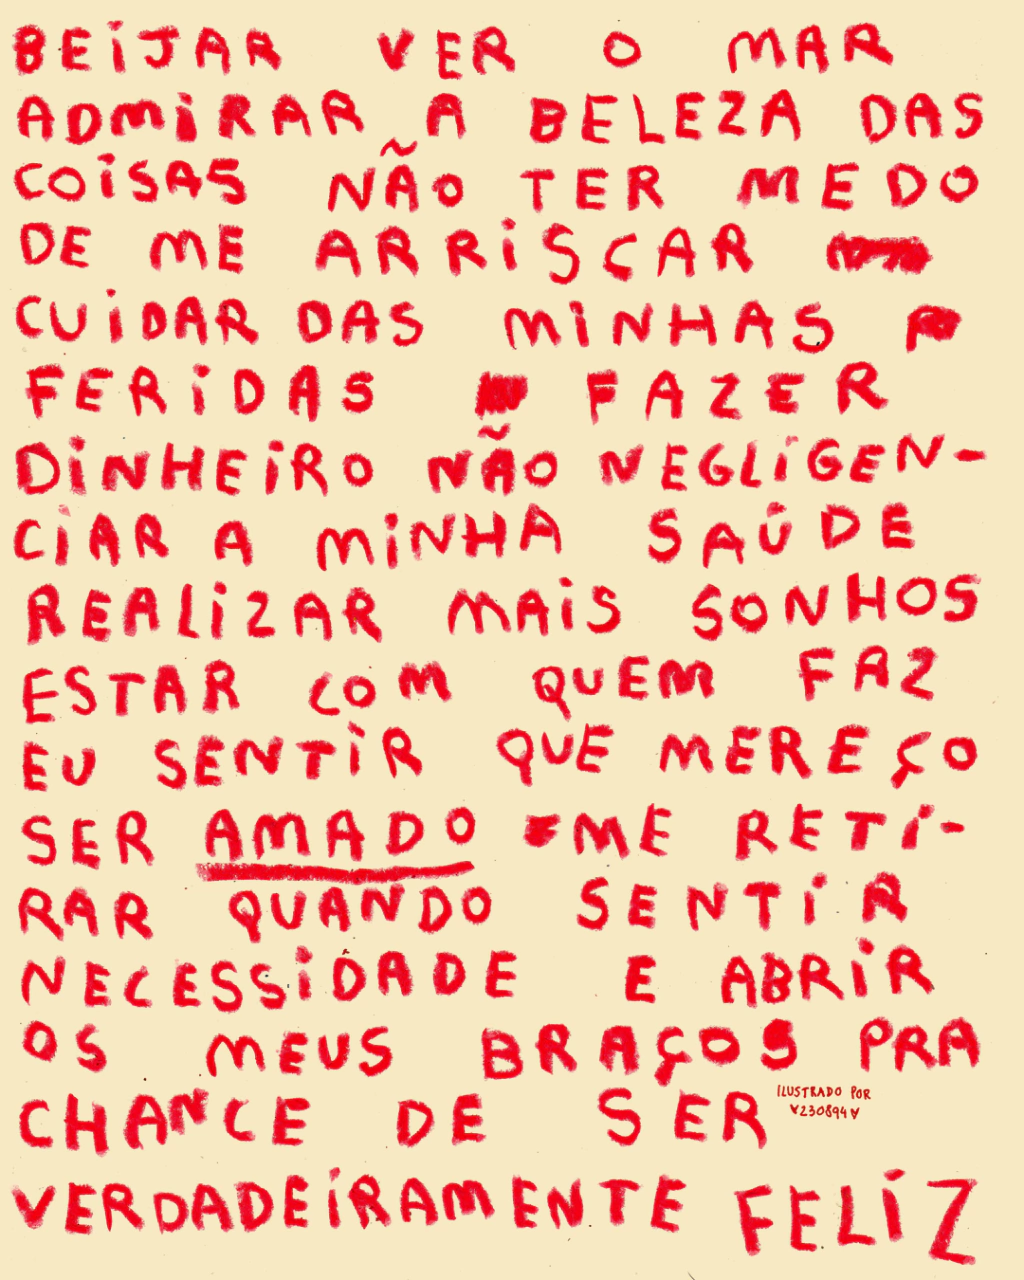 BEIJAR VER O MAR
ADMIRAR A BELEZA DAS
COISAS NÃO TER MEDO
DE ME ARRISCAR
CUIDAR DAS MINHAS
FERIDAS FAZER
DINHEIRO NÃO NEGLIGEN-
CIAR A MINHA SAÚDE
REALIZAR MAIS SONHOS
ESTAR COM QUEM FAZ
EU SENTIR QUE MEREÇO
SER AMADO ME RETI-
RAR QUANDO SENTIR
NECESSIDADE E ABRIR
OS MEUS BRAÇOS PRA
CHANCE DE SER
ILUSTRADO POR
♥230894♥
VERDADEIRAMENTE FELIZ